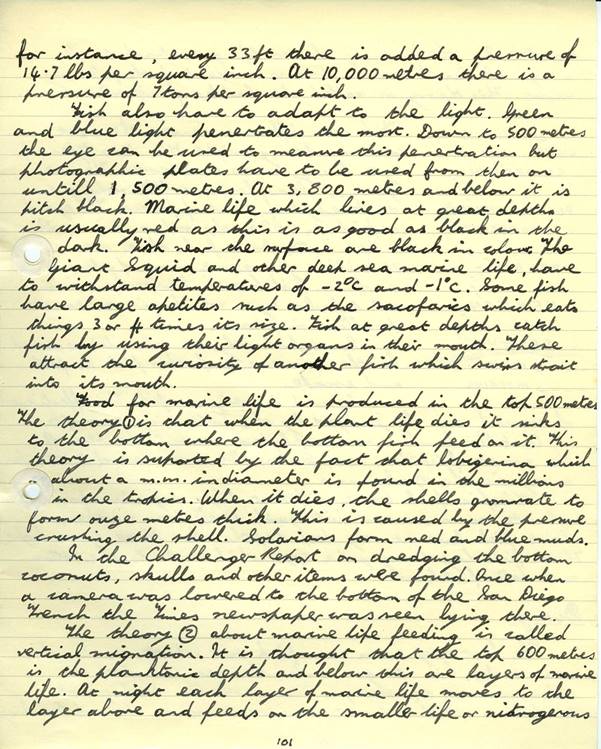 for instance, every 33ft there is added a pressure of
14.7 lbs per square inch. At 10,000 metres there is a
pressure of 7 tons per square inch.
Fish also have to adapt to the light. Green
and blue light penertrates the most. Down to 500 metres
the eye can be used to measure this penertration but
photographic plates have to be used from then on
untill 1,500 metres. At 3,800 metres and below it is
pitch black. Marine life which lives at great depths
is usually red as this is as good as black in the
dark. Fish near the surface are black in colour. The
Giant Squid and other deep sea marine life, have
to withstand temperatures of -2°C and -1°C. Some fish
have large apetites such as the sacofarics which eats
things, 3 or 4 times its size. Fish at great depths catch
fish by using their light organs in their mouth. These
attract the curiosity of another fish which swims strait
into its mouth.
Food for marine life is produced in the top 500 metres
The theory ① is that when the plant life dies it sinks
to the bottom where the bottom fish feed on it. This
theory is suported by the fact that lobigerina which
about a m.m. in diameter is found in the millions
in the tropics. When it dies, the shells
form ouze metres thick. This is caused by the pressure
crushing the shell. Solarians form red and blue muds.
In the Challenger Report on dredging the bottom
coconuts, skulls and other items were found. Once when
a camera was lowered to the bottom of the San Diego
Trench the Times newspaper was seen lying there.
The theory ② about marine life feeding is called
vertical migration. It is thought that the top 600 metres
is the planktonic depth and below this are layers of marine
life. At night each layer of marine life moves to the
layer above and feeds on the smaller life or nitrogerous
101